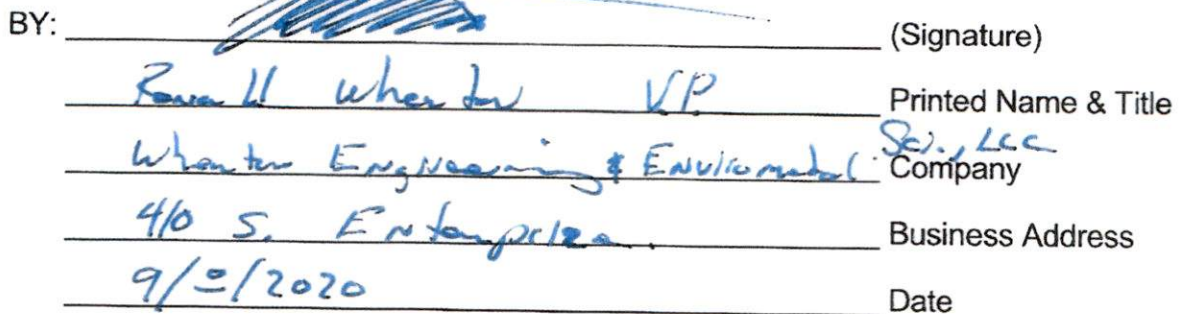 BY: (Signature)
Wharton VP Printed Name & Title
Wharton Engineering & Enviromental Sci., LLC Company
410 S. Enterprize Business Address
9/ /2020 Date